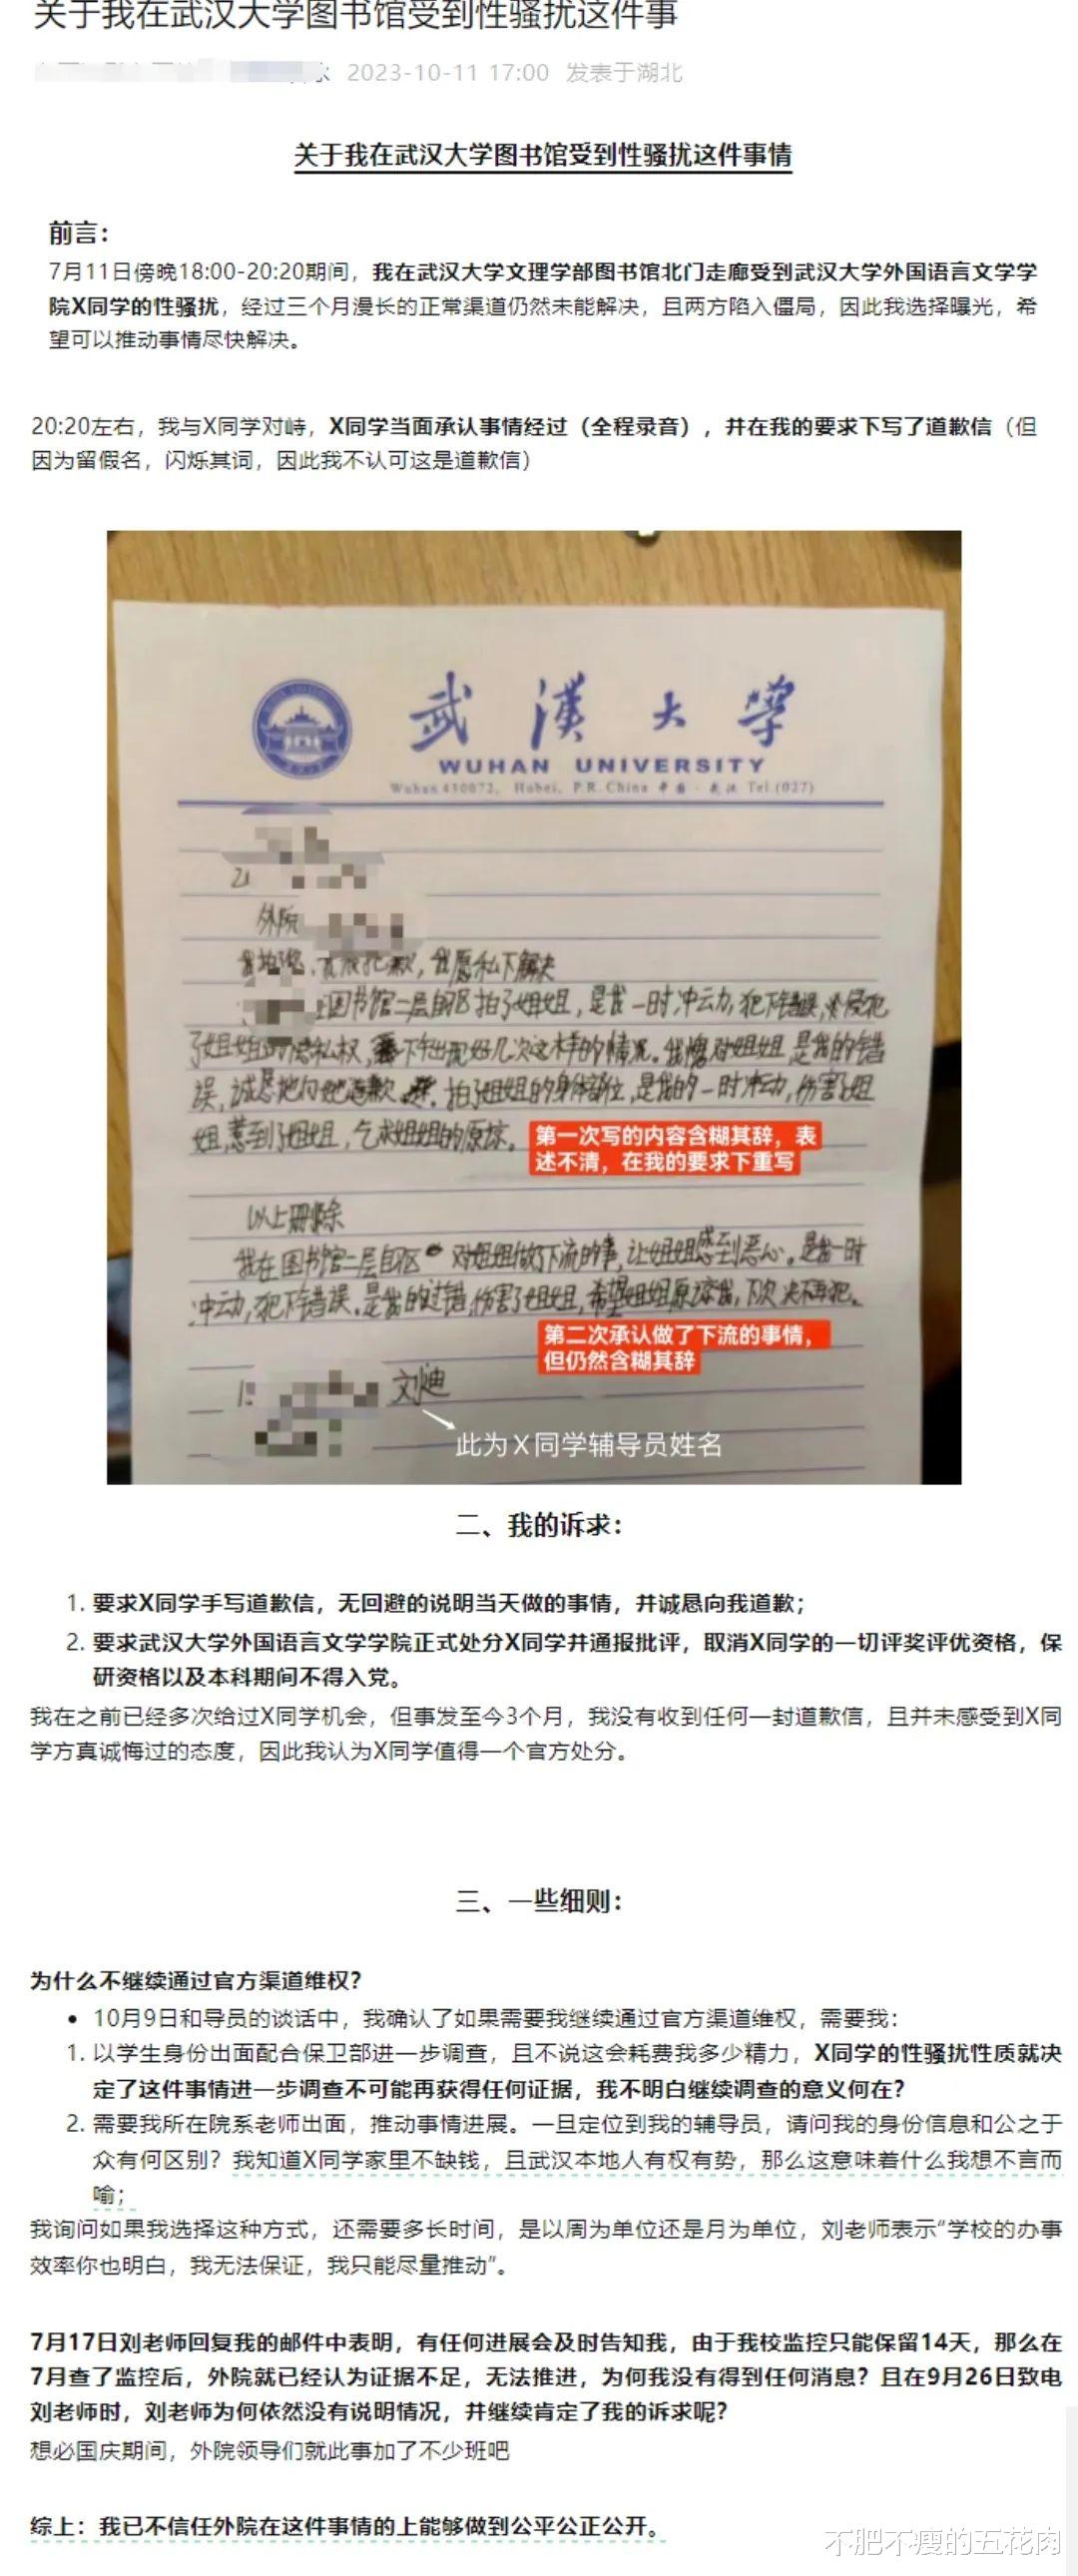 关于我在武汉大学图书馆受到性骚扰这件事
2023-10-11 17:00 发表于湖北
关于我在武汉大学图书馆受到性骚扰这件事情
前言：
7月11日傍晚18:00-20:20期间，我在武汉大学文理学部图书馆北门走廊受到武汉大学外国语言文学学
院X同学的性骚扰，经过三个月漫长的正常渠道仍然未能解决，且两方陷入僵局，因此我选择曝光，希
望可以推动事情尽快解决。
20:20左右，我与X同学对峙，X同学当面承认事情经过（全程录音），并在我的要求下写了道歉信（但
因为留假名，闪烁其词，因此我不认可这是道歉信）
武漢大學
WUHAN UNIVERSITY
Wuhan 430072, Hubei, P.R.China 中国·武汉 Tel.(027)
外院
我愿私下解决
图书馆二层自习区拍了姐姐，是我一时冲动，犯下错误，侵犯
了姐姐的隐私权，下午出现好几次这样的情况。我愧对姐姐，是我的错
误，诚恳地向她道歉，拍了姐姐的身体部位，是我的一时冲动，伤害了姐
姐，惹到了姐姐，乞求姐姐的原谅。
第一次写的内容含糊其辞，表
述不清，在我的要求下重写
以上删除
我在图书馆二层自习区对姐姐做了下流的事，让姐姐感到恶心。是我一时
冲动，犯下错误，是我的过错，伤害了姐姐，希望姐姐原谅我，下次决不再犯。
第二次承认做了下流的事情，
但仍然含糊其辞
刘迪
此为X同学辅导员姓名
二、我的诉求：
1. 要求X同学手写道歉信，无回避的说明当天做的事情，并诚恳向我道歉；
2. 要求武汉大学外国语言文学学院正式处分X同学并通报批评，取消X同学的一切评奖评优资格，保
研资格以及本科期间不得入党。
我在之前已经多次给过X同学机会，但事发至今3个月，我没有收到任何一封道歉信，且并未感受到X同
学方真诚悔过的态度，因此我认为X同学值得一个官方处分。
三、一些细则：
为什么不继续通过官方渠道维权？
• 10月9日和导员的谈话中，我确认了如果需要我继续通过官方渠道维权，需要我：
1. 以学生身份出面配合保卫部进一步调查，且不说这会耗费我多少精力，X同学的性骚扰性质就决
定了这件事情进一步调查不可能再获得任何证据，我不明白继续调查的意义何在？
2. 需要我所在院系老师出面，推动事情进展。一旦定位到我的辅导员，请问我的身份信息和公之于
众有何区别？我知道X同学家里不缺钱，且武汉本地人有权有势，那么这意味着什么我想不言而
喻；
我询问如果我选择这种方式，还需要多长时间，是以周为单位还是月为单位，刘老师表示“学校的办事
效率你也明白，我无法保证，我只能尽量推动”。
7月17日刘老师回复我的邮件中表明，有任何进展会及时告知我，由于我校监控只能保留14天，那么在
7月查了监控后，外院就已经认为证据不足，无法推进，为何我没有得到任何消息？且在9月26日致电
刘老师时，刘老师为何依然没有说明情况，并继续肯定了我的诉求呢？
想必国庆期间，外院领导们就此事加了不少班吧
综上：我已不信任外院在这件事情的上能够做到公平公正公开。
不肥不瘦的五花肉